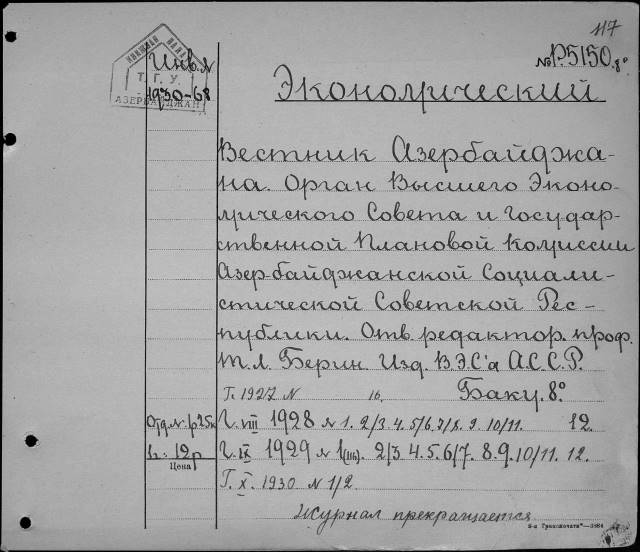 117
№ Р.5150.8°
Инв. №
1930-68
Т. Г. У.
АЗЕРБАЙДЖАН
Экономический
Вестник Азербайджа-
на. Орган Высшего Эконо-
мического Совета и Государ-
ственной Плановой Комиссии
Азербайджанской Социали-
стической Советской Рес-
публики. Отв. редактор. проф.
Т.Л. Берин. Изд. В.Э.С'а А.С.С.Р.
Г. 1927 № 16. Баку. 8°
Отд. №
Г. VIII 1928 № 1. 2/3 4. 5/6. 7/8. 9. 10/11. 12.
ц. 12р
Цена
Г. IX 1929 № 1(III). 2/3 4. 5. 6/7. 8. 9. 10/11. 12.
Г. X. 1930 № 1/2
Журнал прекращается.